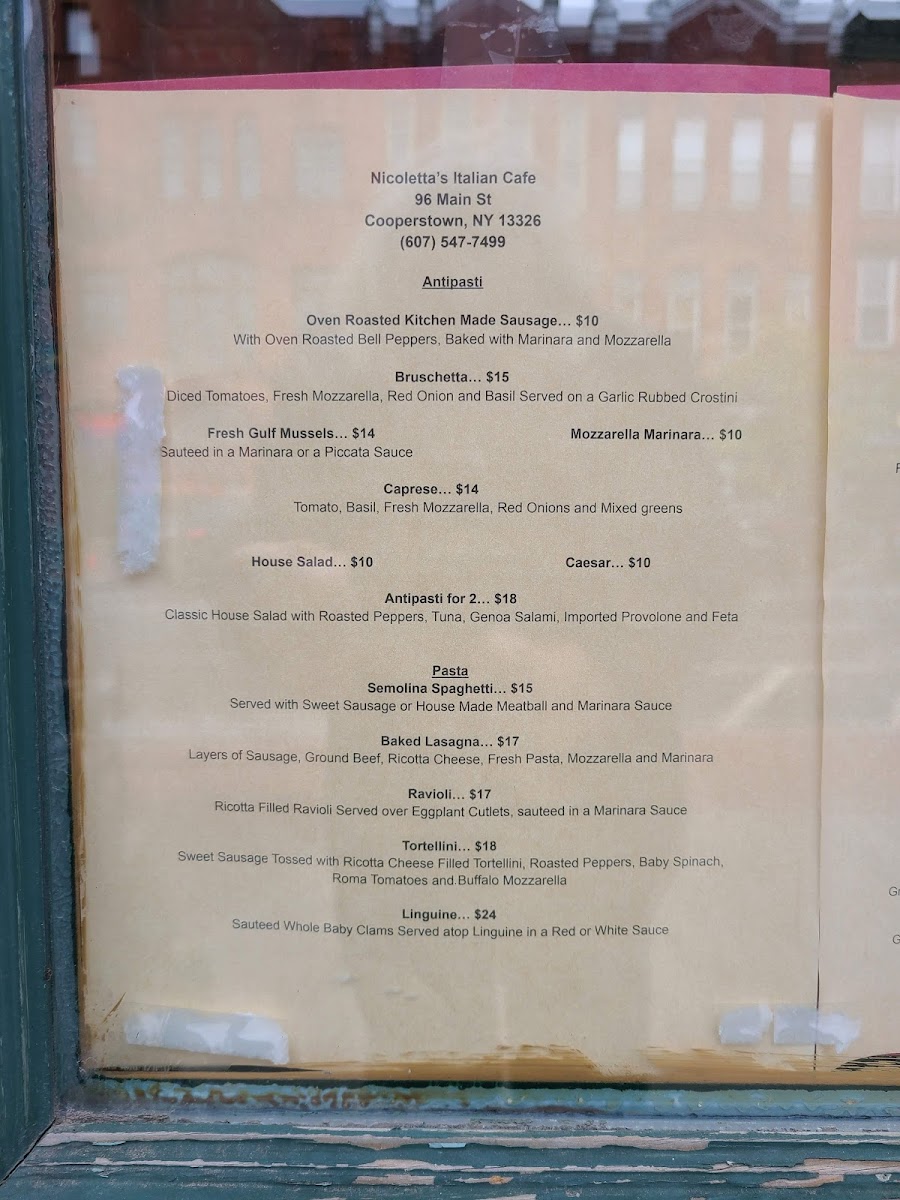 Nicoletta's Italian Cafe
96 Main St
Cooperstown, NY 13326
(607) 547-7499
Antipasti
Oven Roasted Kitchen Made Sausage... $10
With Oven Roasted Bell Peppers, Baked with Marinara and Mozzarella
Bruschetta... $15
Diced Tomatoes, Fresh Mozzarella, Red Onion and Basil Served on a Garlic Rubbed Crostini
Fresh Gulf Mussels... $14 Mozzarella Marinara... $10
Sauteed in a Marinara or a Piccata Sauce
Caprese... $14
Tomato, Basil, Fresh Mozzarella, Red Onions and Mixed greens
House Salad... $10 Caesar... $10
Antipasti for 2... $18
Classic House Salad with Roasted Peppers, Tuna, Genoa Salami, Imported Provolone and Feta
Pasta
Semolina Spaghetti... $15
Served with Sweet Sausage or House Made Meatball and Marinara Sauce
Baked Lasagna... $17
Layers of Sausage, Ground Beef, Ricotta Cheese, Fresh Pasta, Mozzarella and Marinara
Ravioli... $17
Ricotta Filled Ravioli Served over Eggplant Cutlets, sauteed in a Marinara Sauce
Tortellini... $18
Sweet Sausage Tossed with Ricotta Cheese Filled Tortellini, Roasted Peppers, Baby Spinach,
Roma Tomatoes and Buffalo Mozzarella
Linguine... $24
Sauteed Whole Baby Clams Served atop Linguine in a Red or White Sauce